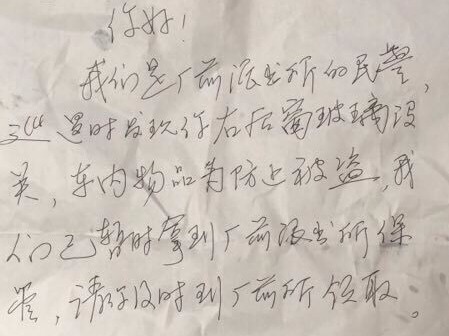 你好！
我们是厂前派出所的民警，
巡逻时发现你右后窗玻璃没
关，车内物品为防止被盗，我
们已暂时拿到厂前派出所保
管，请你及时到厂前所领取。